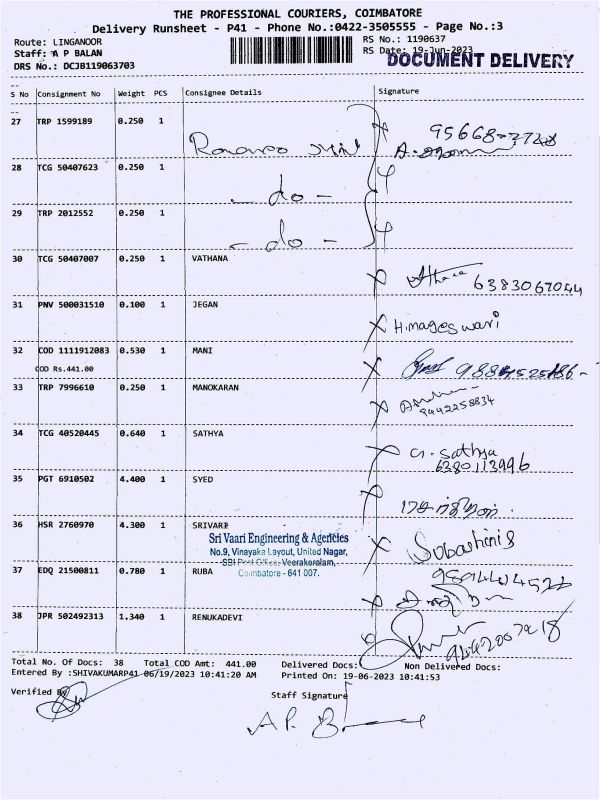 THE PROFESSIONAL COURIERS, COIMBATORE
Delivery Runsheet - P41 - Phone No.:0422-3505555 - Page No.:3
Route: LINGANOOR
RS No.: 1190637
Staff: A P BALAN
RS Date: 19-Jun-2023
DRS No.: DCJB119063703
DOCUMENT DELIVERY
S No Consignment No Weight PCS Consignee Details Signature
27 TRP 1599189 0.250 1
28 TCG 50407623 0.250 1
- do -
29 TRP 2012552 0.250 1
- do -
30 TCG 50407007 0.250 1 VATHANA
6383067044
31 PNV 500031510 0.100 1 JEGAN
Himageswari
32 COD 1111912083 0.530 1 MANI
COD Rs.441.00
33 TRP 7996610 0.250 1 MANOKARAN
9442258834
34 TCG 40520445 0.640 1 SATHYA
G. Sathya
6380113996
35 PGT 6910502 4.400 1 SYED
36 HSR 2760970 4.300 1 SRIVARI
Sri Vaari Engineering & Agencies
No.9, Vinayaka Layout, United Nagar,
SBI Post Office, Veerakeralam,
Coimbatore - 641 007.
Subashini S
37 EDQ 21500811 0.780 1 RUBA
38 JPR 502492313 1.340 1 RENUKADEVI
Total No. Of Docs: 38 Total COD Amt: 441.00 Delivered Docs: Non Delivered Docs:
Entered By :SHIVAKUMARP41 06/19/2023 10:41:20 AM Printed On: 19-06-2023 10:41:53
Verified By
Staff Signature
A.P. B